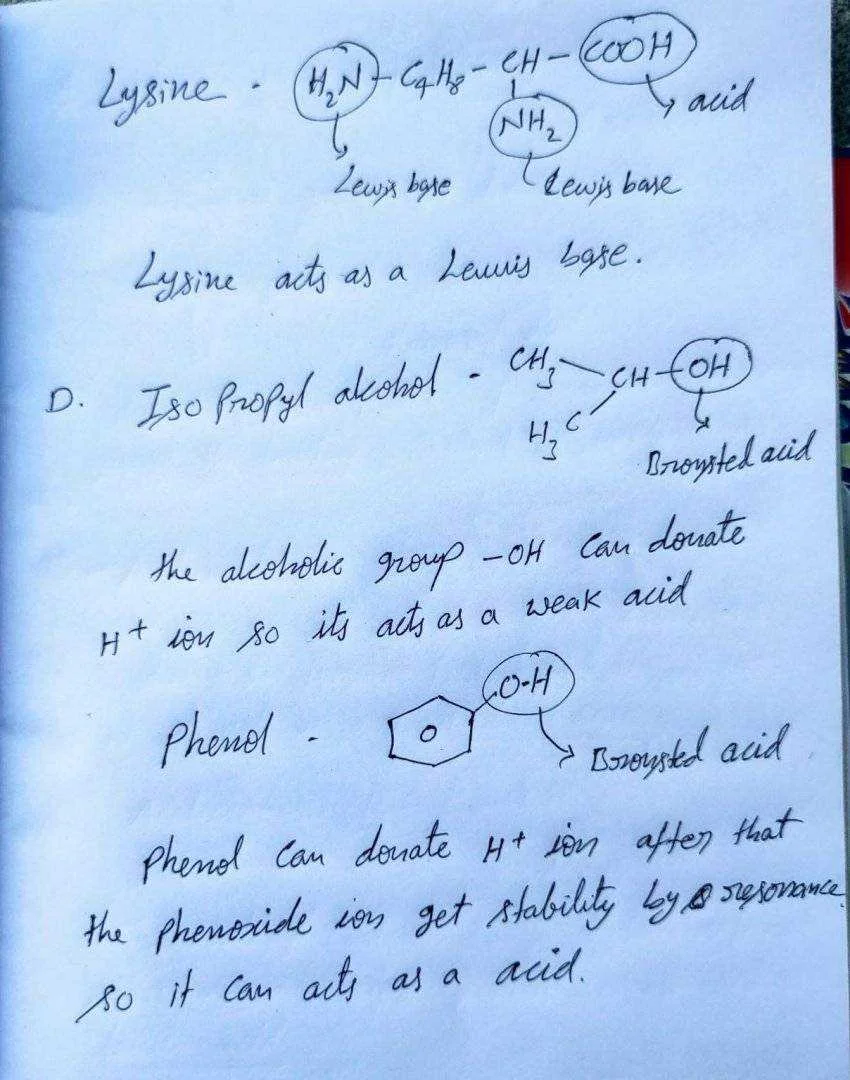 Lysine - H₂N - C₄H₈ - CH - COOH
NH₂
acid
Lewis base
Lewis base
Lysine acts as a Lewis base.
D. Iso Propyl alcohol - CH₃ CH - OH
H₃C
Bronsted acid
the alcoholic group - OH can donate
H⁺ ion so its acts as a weak acid
Phenol - O-H
Bronsted acid
Phenol can donate H⁺ ion after that
the phenoxide ion get stability by resonance
so it can acts as a acid.